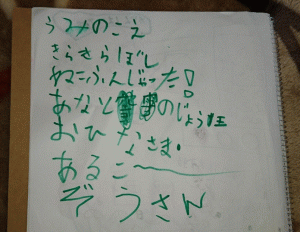 うみのこえ
きらきらぼし
ねこふんじゃった!
あなと雪のじょう王
おひなさま
あるこー
ぞうさん